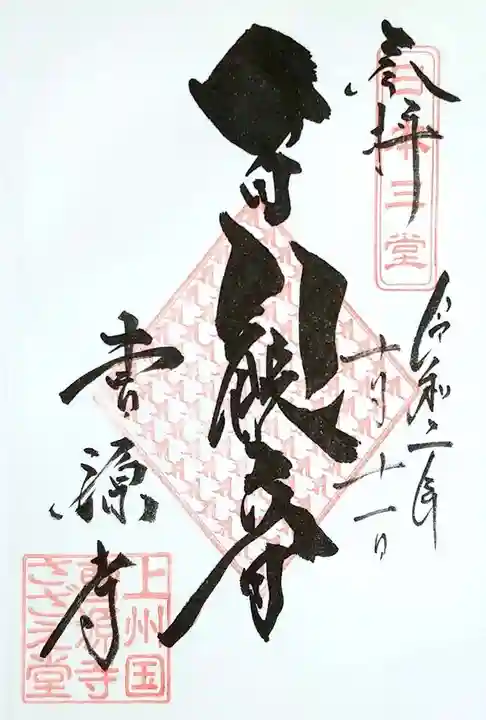 奉拝
日本三堂
令和二年
十月十一日
百観音
曹源寺
上州国
曹源寺
さざえ堂